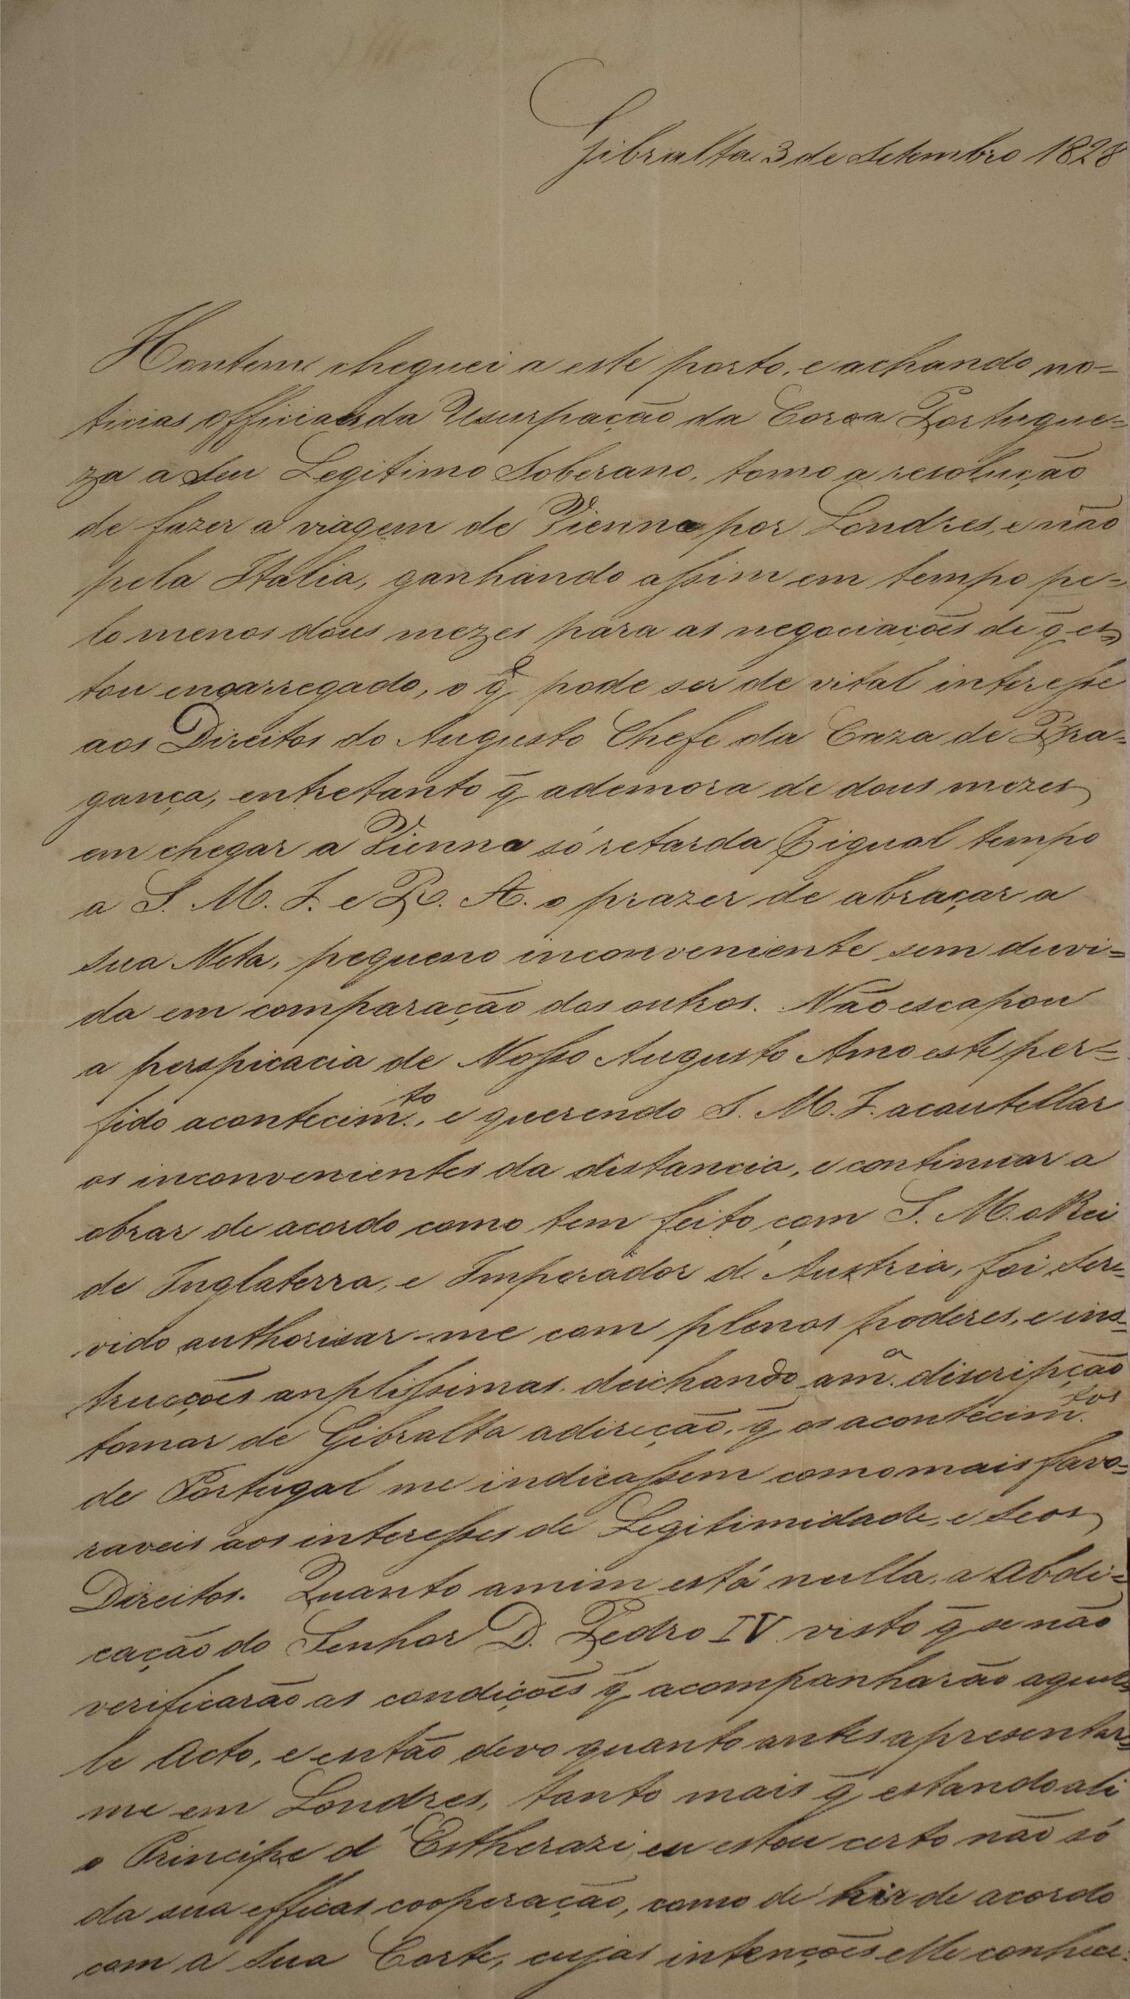 Gibralta 3 de Setembro 1828
Hontem cheguei a este porto, e achando no=
ticias officiaes da Usurpação da Coroa Portugue=
za a Seu Legitimo Soberano, tomo a resolução
de fazer a viagem de Vienna por Londres, e não
pela Italia, ganhando assim em tempo pe=
lo menos dous mezes para as negociações de q̃ es=
tou encarregado, o q̃ pode ser de vital interesse
aos Direitos do Augusto Chefe da Caza de Bra=
gança, entretanto q̃ a demora de dous mezes
em chegar a Vienna só retarda igual tempo
a S. M. I. e R. A. o prazer de abraçar a
sua Neta, pequeno inconveniente sem duvi=
da em comparação dos outros. Não escapou
a perspicacia de Nosso Augusto Amo este per=
fido acontecim.to, e querendo S. M. I. acautellar
os inconvenientes da distancia, e continuar a
obrar de acordo como tem feito com S. M. o Rei
de Inglaterra, e Imperador d'Austria, foi Ser=
vido authorisar-me com plenos poderes, e ins=
trucções anplissimas, deichando a m.a discripção
tomar de Gibralta a direção, q̃ os acontecim.tos
de Portugal me indicassem como mais favo=
raveis aos interesses de Legitimidade, e Seos
Direitos. Quanto a mim está nulla, a Abdi=
cação do Senhor D. Pedro IV visto q̃ se não
verificarão as condições q̃ acompanharão aquel=
le Acto, e então devo quanto antes apresentar=
me em Londres, tanto mais q̃ estando ali
o Principe d'Estherazi, eu estou certo não só
da sua efficas cooperação, como de hir de acordo
com a sua Corte, cujas intenções elle conhece.